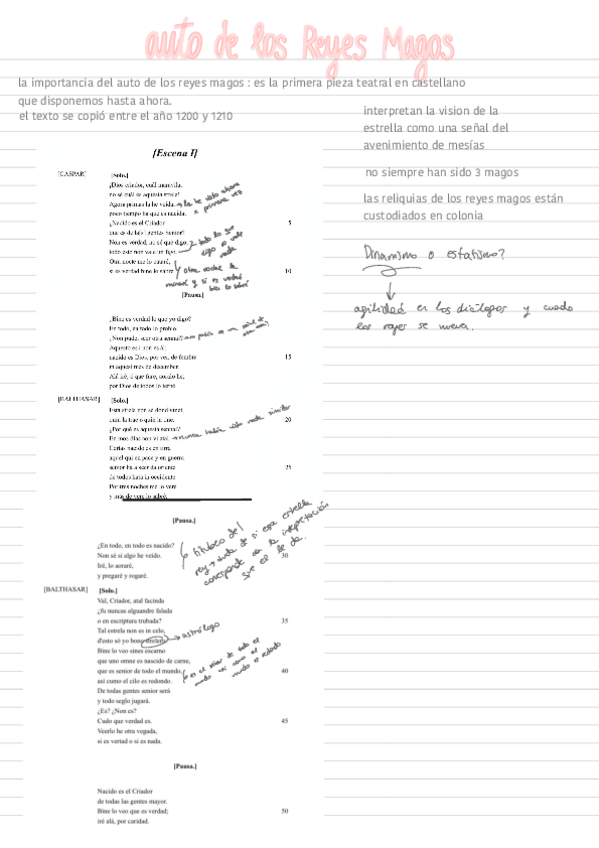 auto de los Reyes Magos
la importancia del auto de los reyes magos : es la primera pieza teatral en castellano
que disponemos hasta ahora.
el texto se copió entre el año 1200 y 1210
interpretan la vision de la
estrella como una señal del
avenimiento de mesías
no siempre han sido 3 magos
las reliquias de los reyes magos están
custodiados en colonia
Dinamismo o estatismo?
agilidad en los diálogos y cuando
los reyes se mueven.
[Escena I]
[CASPAR] [Solo.]
¡Dios criador, cuál maravila,
no sé cuál es aquesta strela!
Agora primas la he veída,
poco tiempo ha que es nacida.
¿Nacido es el Criador 5
que es de las gentes senior?
Non es verdad, no sé qué digo,
todo esto non vale un figo.
Otra nocte me lo cataré,
si es verdad bine lo sabré. 10
la he visto ahora
x primera vez
[Pausa]
¿Bine es verdad lo que yo digo?
En todo, en todo lo prohío.
¿Non pudet seer otra sennal?
Aquesto es i non es ál;
nacido es Dios, por ver, de fembra 15
in aquest mes de december.
Alá iré, o que fure, aoralo he,
por Dios de todos lo terné.
[BALTHASAR] [Solo.]
Esta strela non sé dond vinet,
quin la trae o quin la tine. 20
¿Por qué es aquesta sennal?
En mos días non vi atal.
nunca había visto nada similar
Certas nacido es en tirra
aquel qui en pace y en guerra
senior ha a seer da oriente 25
de todos hata in occidente.
Por tres noches me lo veré
y más de vero lo sabré.
[Pausa.]
¿En todo, en todo es nacido?
Non sé si algo he veído. 30
Iré, lo aoraré,
y pregaré y rogaré.
titubeo del
rey → duda de si esa estrella
corresponde con la interpretación
que él le da.
[BALTHASAR] [Solo.]
Val, Criador, atal facinda
¿fu nuncas alguandre falada
o en escriptura trubada? 35
Tal estrela non es in celo,
d'esto só yo bono strelero;
→ astrólogo
Bine lo veo sines escarno
que uno omne es nascido de carne,
que es senior de todo el mundo, 40
así como el cilo es redondo.
De todas gentes senior será
y todo seglo jugará.
¿Es? ¿Non es?
Cudo que verdad es. 45
Veerlo he otra vegada,
si es vertad o si es nada.
[Pausa.]
Nacido es el Criador
de todas las gentes mayor.
Bine lo veo que es verdad; 50
iré alá, por caridad.